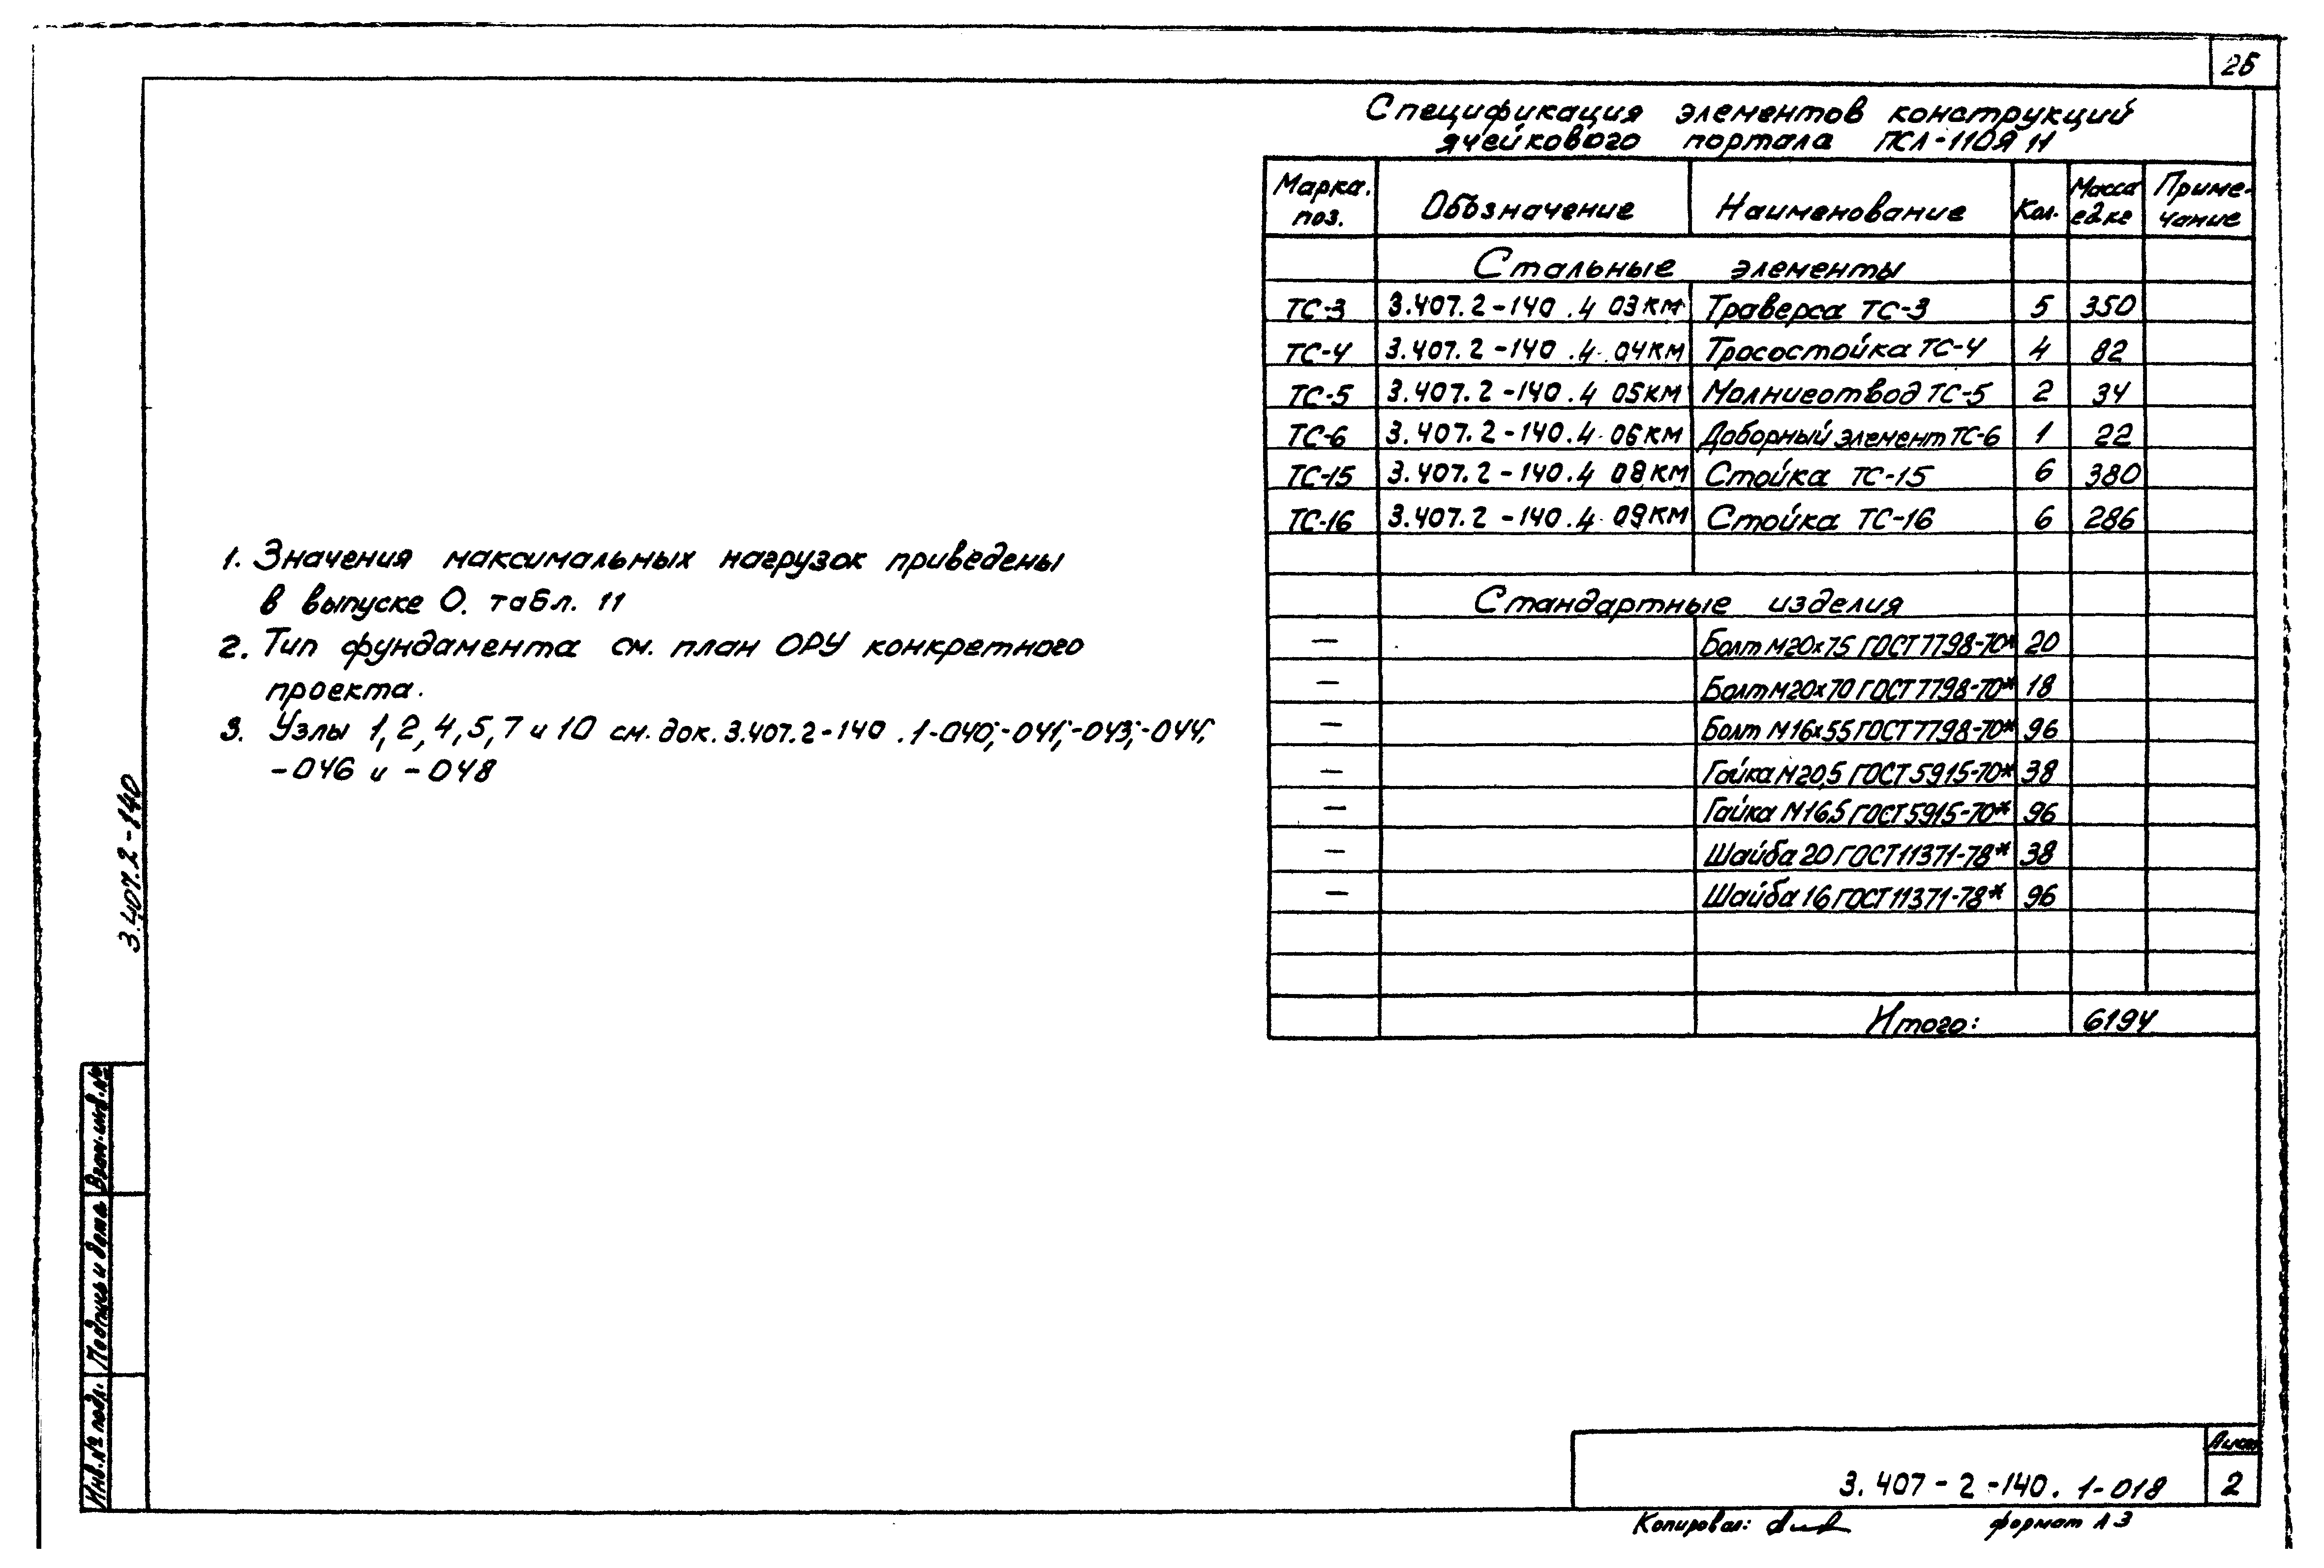 26
Спецификация элементов конструкций
ячейкового портала ПСЛ-110Я 11
Марка. поз. Обозначение Наименование Кол. Масса ед. кг Приме-чание
Стальные элементы
ТС-3 3.407.2-140 .4 03КМ Траверса ТС-3 5 350
ТС-4 3.407.2-140 .4 04КМ Тросостойка ТС-4 4 82
ТС-5 3.407.2-140.4 05КМ Молниеотвод ТС-5 2 34
ТС-6 3.407.2-140.4 06КМ Доборный элемент ТС-6 1 22
ТС-15 3.407.2-140.4 08КМ Стойка ТС-15 6 380
ТС-16 3.407.2-140.4 09КМ Стойка ТС-16 6 286
Стандартные изделия
— Болт М20х75 ГОСТ 7798-70* 20
— Болт М20х70 ГОСТ 7798-70* 18
— Болт М16х55 ГОСТ 7798-70* 96
— Гайка М20,5 ГОСТ 5915-70* 38
— Гайка М16,5 ГОСТ 5915-70* 96
— Шайба 20 ГОСТ 11371-78* 38
— Шайба 16 ГОСТ 11371-78* 96
Итого: 6194
1. Значения максимальных нагрузок приведены
в выпуске 0. табл. 11
2. Тип фундамента см. план ОРУ конкретного
проекта.
3. Узлы 1, 2, 4, 5, 7 и 10 см. док. 3.407.2-140 .1-040; -041; -043; -044;
-046 и -048
3.407.2-140
Взам. инв. №
Подпись и дата
Инв. № подл.
3. 407-2-140. 1-018
Лист
2
Копировал:
формат А3